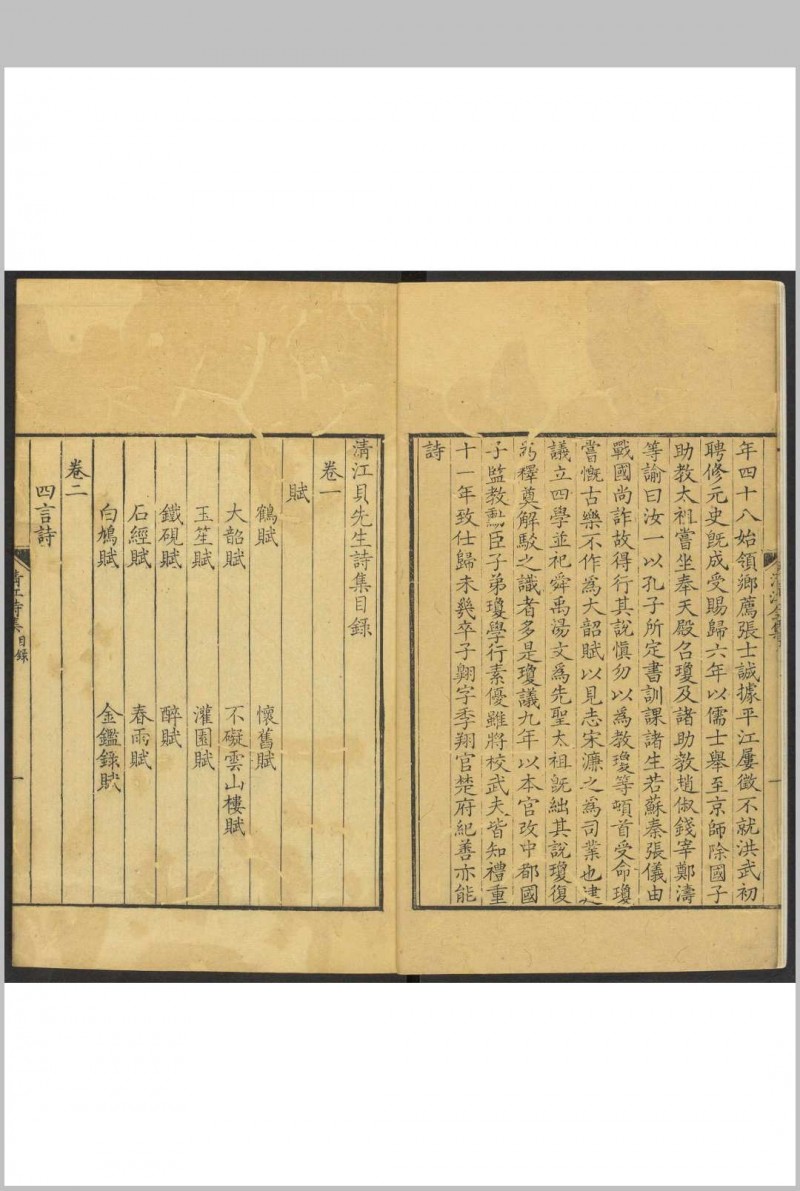 年四十八始領鄉薦張士誠據平江屢徵不就洪武初
聘修元史既成受賜歸六年以儒士舉至京師除國子
助教太祖嘗坐奉天殿召瓊及諸助教趙俶錢宰鄭濤
等諭曰汝一以孔子所定書訓課諸生若蘇秦張儀由
戰國尚詐故得行其說慎勿以為教瓊等頓首受命瓊
嘗慨古樂不作為大韶賦以見志宋濂之為司業也建
議立四學並祀舜禹湯文為先聖太祖既絀其說瓊復
為釋奠解駁之識者多是瓊議九年以本官改中都國
子監教勳臣子弟瓊學行素優雖將校武夫皆知禮重
十一年致仕歸未幾卒子翱字季翔官楚府紀善亦能
詩
清江貝先生詩集目錄
卷一
賦
鶴賦 懷舊賦
大韶賦 不礙雲山樓賦
玉笙賦 灌園賦
鐵硯賦 醉賦
石經賦 春雨賦
白鳩賦 金鑑錄賦
卷二
四言詩
清江詩集 目錄 一